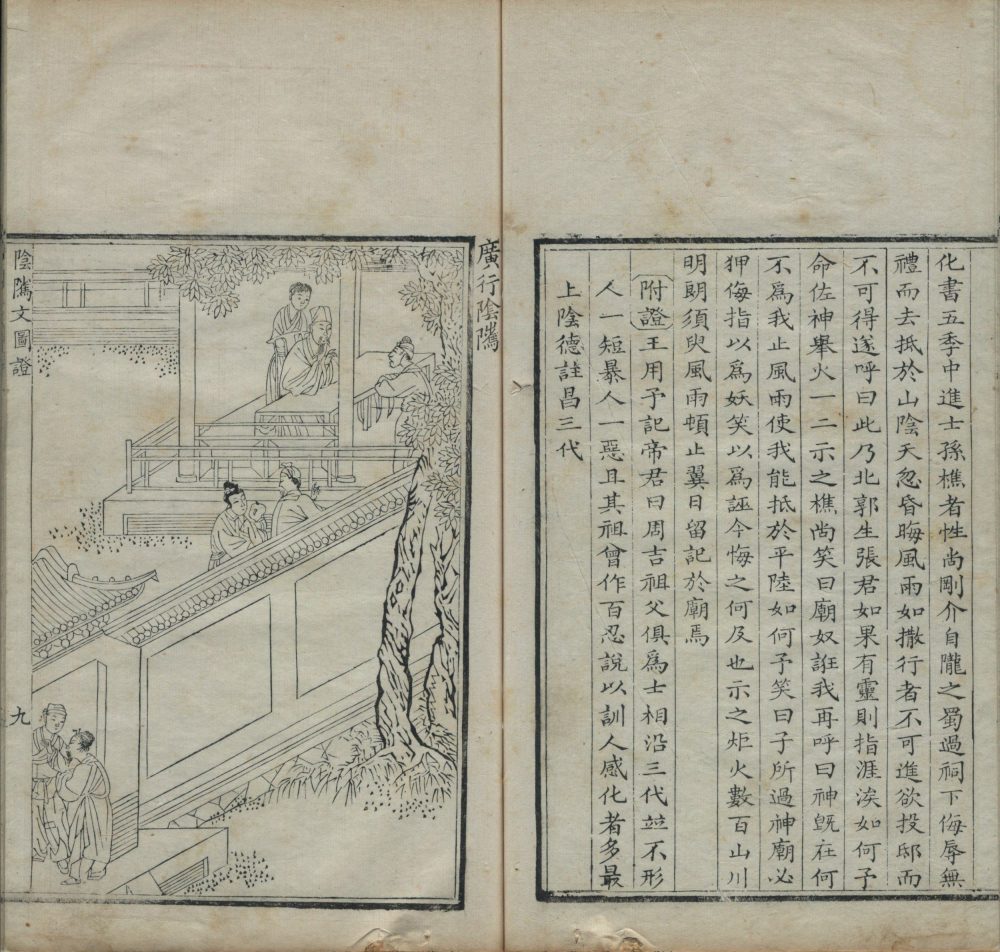 化書五季中進士孫樵者性尚剛介自隴之蜀過祠下侮辱無
禮而去抵於山陰天忽昏晦風雨如撒行者不可進欲投邸而
不可得遂呼曰此乃北郭生張君如果有靈則指涯涘如何予
命佐神舉火一二示之樵尚笑曰廟奴誑我再呼曰神旣在何
不爲我止風雨使我能抵於平陸如何予笑曰子所過神廟必
狎侮指以爲妖笑以爲誣今悔之何及也示之炬火數百山川
明朗須臾風雨頓止翼日留記於廟焉
附證王用予記帝君曰周吉祖父俱爲士相沿三代竝不形
人一短暴人一惡且其祖曾作百忍說以訓人感化者多最
上陰德註昌三代
廣行陰騭
陰騭文圖證
九